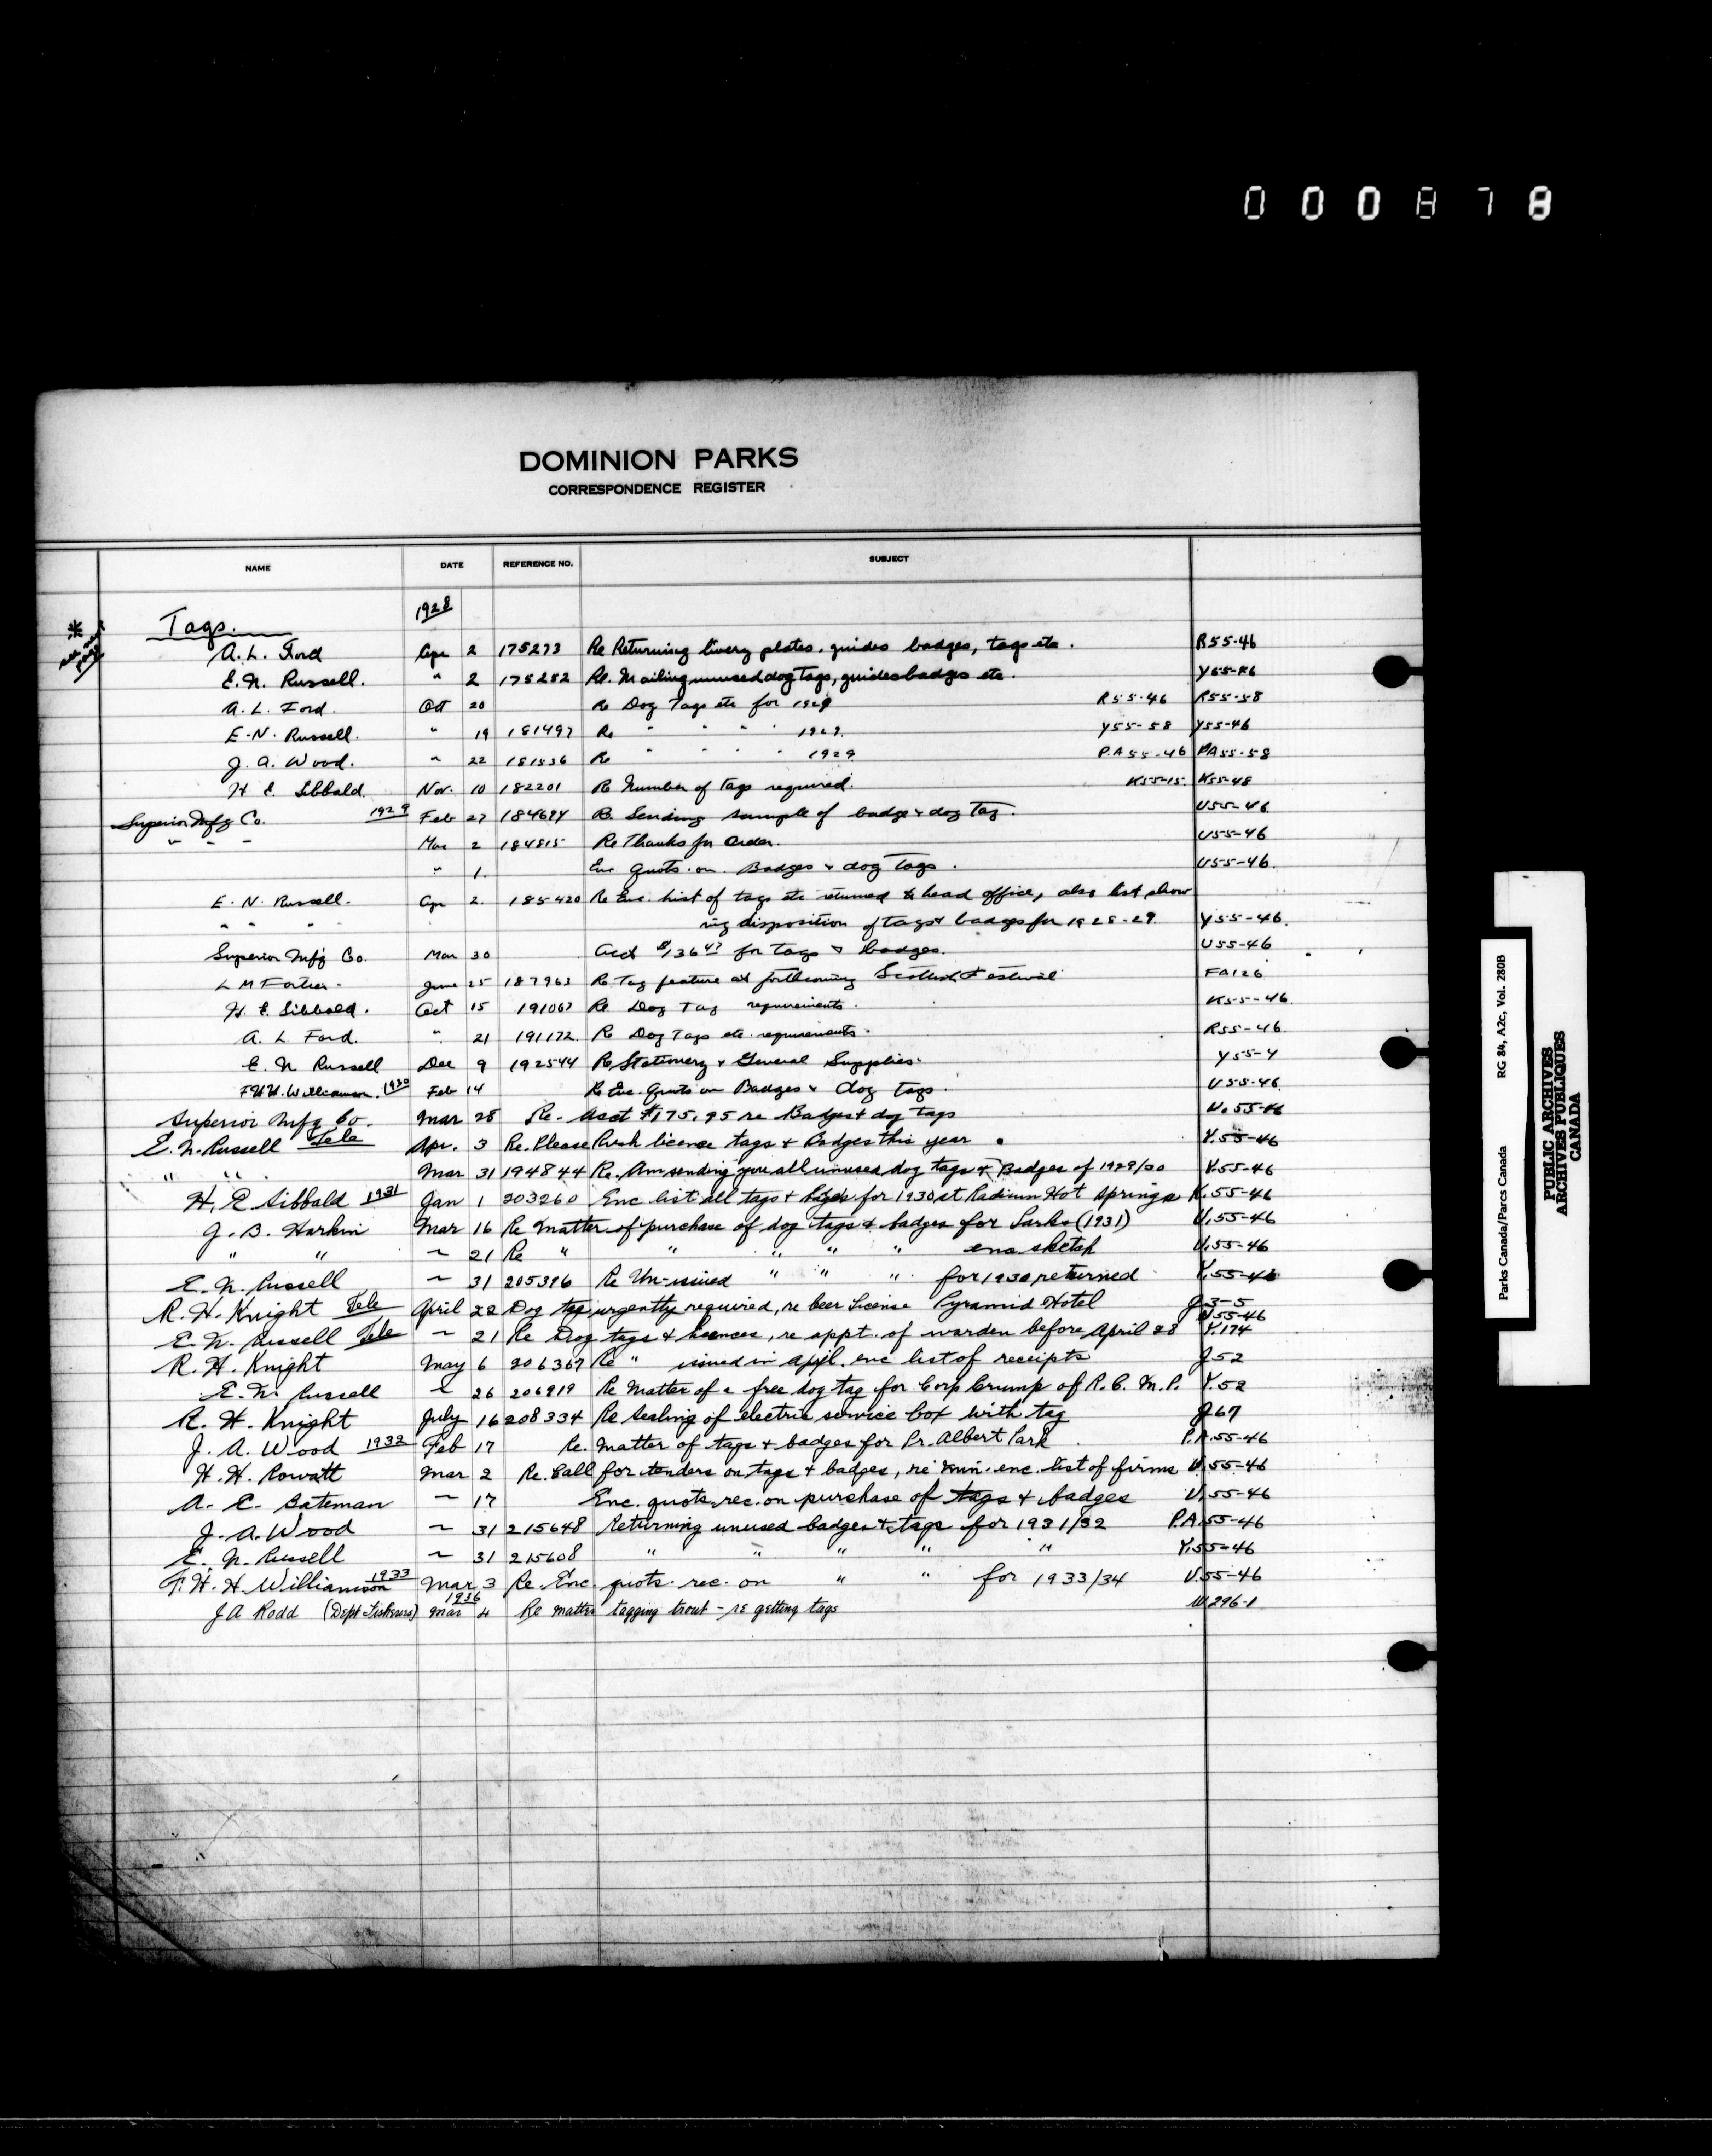 0 0 0 8 7 8
DOMINION PARKS
CORRESPONDENCE REGISTER
NAME DATE REFERENCE NO. SUBJECT
Tags. 1928
A. L. Ford Apr 2 175273 Re Returning livery plates. guides badges, tags etc. R55-46
E. N. Russell. " 2 175252 Re. Mailing unused dog Tags, guides badges etc. Y55-46
A. L. Ford. Oct 20 Re Dog Tags etc for 1929 R55-46 R55-58
E. N. Russell. " 19 181497 Re " " " " 1929. Y55-58 Y55-46
J. A. Wood. " 22 181536 Re " " " 1929 P.A55-46 PA55-58
H E. Sibbald. Nov. 10 182201 Re Number of tags required. K55-15. K55-48
Superior Mfg Co. 1929 Feb 27 184694 Re Sending sample of badge & dog tag. U55-46
" " " Mar 2 184815 Re Thanks for Order. U55-46
" 1. Enc Quots. on. Badges & dog Tags. U55-46.
E. N. Russell. Apr 2. 185420 Re Enc. List of tags etc returned to head office, also list show
" " " ing disposition of tags & badges for 1928-29. Y55-46.
Superior Mfg Co. Mar 30 Acct $136 47 for Tags & badges. U55-46
L M Fortier. June 25 187963 Re Tag feature at forthcoming Scottish Festival FA126
H. E. Sibbald. Oct 15 191067 Re Dog Tag requirements. K55-46.
A. L. Ford. " 21 191172. Re Dog Tags etc. requirements. R55-46.
E. N Russell Dec 9 192544 Re Stationery & General Supplies. Y55-4
F.H.H. Williamson. 1930 Feb 14 Re Enc. Quots on Badges & Dog Tags. U55-46.
Superior Mfg Co. Mar 28 Re. Acct $175.95 re Badges & dog tags U.55-46
E. N. Russell Tele Apr. 3 Re. Please Rush licence tags & Badges this year. Y.55-46
" " Mar 31 194844 Re. Am sending you all unused dog tags & Badges of 1929/30 Y.55-46
H. E Sibbald 1931 Jan 1 203260 Enc list all tags & badges for 1930 at Radium Hot Springs K.55-46
J. B. Harkin Mar 16 Re matter of purchase of dog tags & badges for Parks (1931) U.55-46
" " ~ 21 Re " " " " " enc sketch U.55-46
E. N. Russell ~ 31 205396 Re Un-issued " " " for 1930 returned Y.55-46
R. H. Knight Tele April 22 Dog tag urgently required, re beer License Pyramid Hotel J.3-5
U55-46
E. N. Russell Tele ~ 21 Re Dog tags & licences, re appt. of warden before April 28 Y.174
R. H. Knight May 6 206367 Re " issued in April. enc list of receipts J.52
E. N. Russell ~ 26 206919 Re Matter of a free dog tag for Corp Crump of R. C. M. P. Y.52
R. H. Knight July 16 208334 Re Sealing of electric service box with tag J67
J. A. Wood 1932 Feb 17 Re. matter of tags & badges for Pr. Albert Park P.A.55-46
H. H. Rowatt Mar 2 Re. Call for tenders on tags & badges, enc. list of firms U.55-46
A. E. Bateman ~ 17 Enc. quots. rec. on purchase of tags & badges U.55-46
J. A. Wood ~ 31 215648 Returning unused badges & tags for 1931/32 P.A.55-46
E. N. Russell ~ 31 215608 " " " " " Y.55-46
F. H. H Williamson 1933 Mar 3 Re. Enc. quots. rec. on " " for 1933/34 U.55-46
J A Rodd (Dept Fisheries) 1936 Mar 4 Re matter tagging trout - re getting tags W296-1
Parks Canada/Parcs Canada RG 84, A2c, Vol. 280B
PUBLIC ARCHIVES
ARCHIVES PUBLIQUES
CANADA